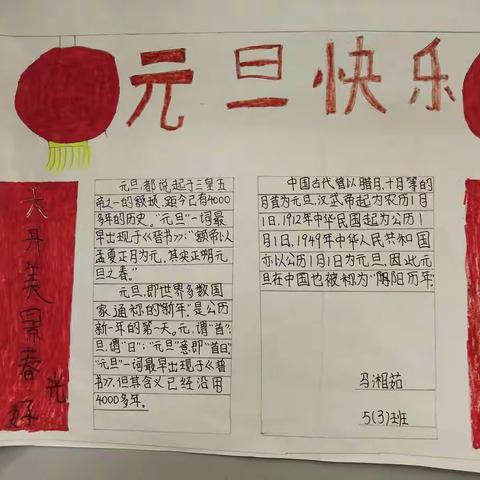 元旦快乐
元旦,都说起于三皇五
帝之一的颛顼,距今已有4000
多年的历史。"元旦"一词最
早出现于《晋书》:"颛帝以
孟夏正月为元,其实正朔元
旦之春。"
元旦,即世界多数国
家通称的"新年",是公历
新一年的第一天。元,谓"首";
旦,谓"日";"元旦"意即"首日"。
"元旦"一词最早出现于《晋
书》,但其含义已经沿用
4000多年。
中国古代曾以腊月、十月等的
月首为元旦,汉武帝起为农历1月
1日,1912年中华民国起为公历1
月1日,1949年中华人民共和国
亦以公历1月1日为元旦,因此元
旦在中国也被称为"阳历年"
马湘茹
5(3)班
元旦美景春光好